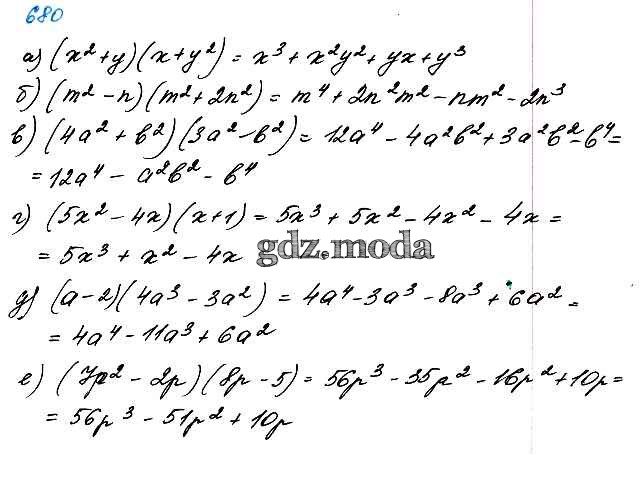 680
а) (x² + y)(x + y²) = x³ + x²y² + yx + y³
б) (m² - n)(m² + 2n²) = m⁴ + 2n²m² - nm² - 2n³
в) (4a² + b²)(3a² - b²) = 12a⁴ - 4a²b² + 3a²b² - b⁴ =
= 12a⁴ - a²b² - b⁴
г) (5x² - 4x)(x + 1) = 5x³ + 5x² - 4x² - 4x =
= 5x³ + x² - 4x
gdz.moda
д) (a - 2)(4a³ - 3a²) = 4a⁴ - 3a³ - 8a³ + 6a² =
= 4a⁴ - 11a³ + 6a²
е) (7p² - 2p)(8p - 5) = 56p³ - 35p² - 16p² + 10p =
= 56p³ - 51p² + 10p